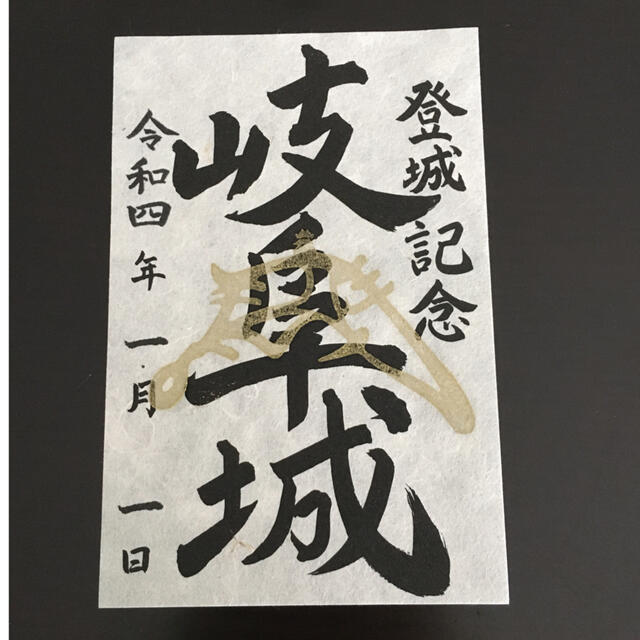 登城記念
岐阜城
令和四年一月一日